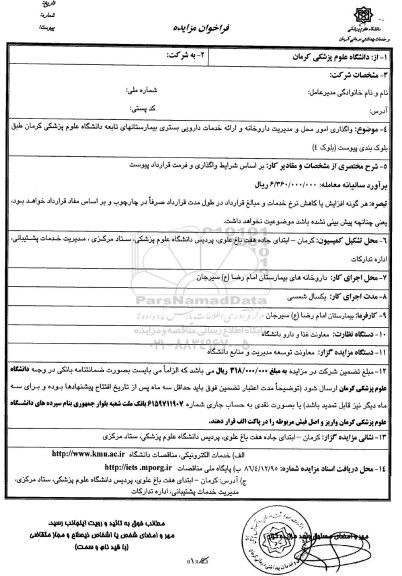 تاریخ:
شماره:
پیوست:
فراخوان مزایده
۱- از: دانشگاه علوم پزشکی کرمان
۲- به شرکت:
۳- مشخصات شرکت:
نام و نام خانوادگی مدیرعامل:
شماره ملی:
آدرس:
کد پستی:
۴- موضوع: واگذاری امور محل و مدیریت داروخانه و ارائه خدمات دارویی بستری بیمارستانهای تابعه دانشگاه علوم پزشکی کرمان طبق
بلوک بندی پیوست (بلوک ۴)
۵- شرح مختصری از مشخصات و مقادیر کار: بر اساس شرایط واگذاری و فرمت قرارداد پیوست
برآورد سالیانه معامله: ۶/۳۶۰/۰۰۰/۰۰۰ ریال
تبصره: هر گونه افزایش یا کاهش نرخ خدمات و مبالغ قرارداد در طول مدت قرارداد صرفاً در چارچوب و بر اساس مفاد قرارداد خواهد بود،
یعنی چنانچه پیش بینی نشده باشد موضوعیت نخواهد داشت.
۶- محل تشکیل کمیسیون: کرمان – ابتدای جاده هفت باغ علوی، پردیس دانشگاه علوم پزشکی، ستاد مرکزی ، مدیریت خدمات پشتیبانی،
اداره تدارکات
۷- محل اجرای کار: داروخانه های بیمارستان امام رضا (ع) سیرجان
۸- مدت اجرای کار: یکسال شمسی
۹- کارفرما: بیمارستان امام رضا (ع) سیرجان
۱۰- دستگاه نظارت: معاونت غذا و دارو دانشگاه
۱۱- دستگاه مزایده گزار: معاونت توسعه مدیریت و منابع دانشگاه
۱۲- مبلغ تضمین شرکت در مزایده به مبلغ ۳۱۸/۰۰۰/۰۰۰ ریال می باشد که الزاماً می بایست بصورت ضمانتنامه بانکی در وجه دانشگاه
علوم پزشکی کرمان ارسال شود (توضیحاً مدت اعتبار تضمین فوق باید حداقل سه ماه پس از تاریخ افتتاح پیشنهادها بوده و برای سه
ماه دیگر نیز قابل تمدید باشد) یا بصورت نقدی به حساب جاری شماره ۶۱۵۹۷۱۱۹۰۷ بانک ملت شعبه بلوار جمهوری بنام سپرده های دانشگاه
علوم پزشکی کرمان واریز و اصل فیش مربوطه را در پاکت الف قرار دهند.
۱۳- نشانی مزایده گزار: کرمان – ابتدای جاده هفت باغ علوی، پردیس دانشگاه علوم پزشکی، ستاد مرکزی
۱۴- محل دریافت اسناد مزایده شماره: ۸۶/۴/۱۲/۹۵
الف) خدمات الکترونیکی، مناقصات دانشگاه http://www.kmu.ac.ir
ب) پایگاه ملی مناقصات http://iets.mporg.ir
ج) آدرس: کرمان – ابتدای جاده هفت باغ علوی، پردیس دانشگاه علوم پزشکی، ستاد مرکزی،
مدیریت خدمات پشتیبانی، اداره تدارکات
ParsNamadData
مطالب فوق به تائید و رویت اینجانب رسید.
مهر و امضای شخص یا اشخاص ذیصلاح و مجاز متقاضی
(با قید نام و سمت)